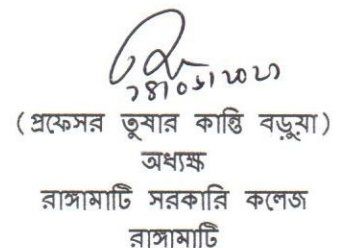 (প্রফেসর তুষার কান্তি বড়ুয়া)
অধ্যক্ষ
রাঙ্গামাটি সরকারি কলেজ
রাঙ্গামাটি